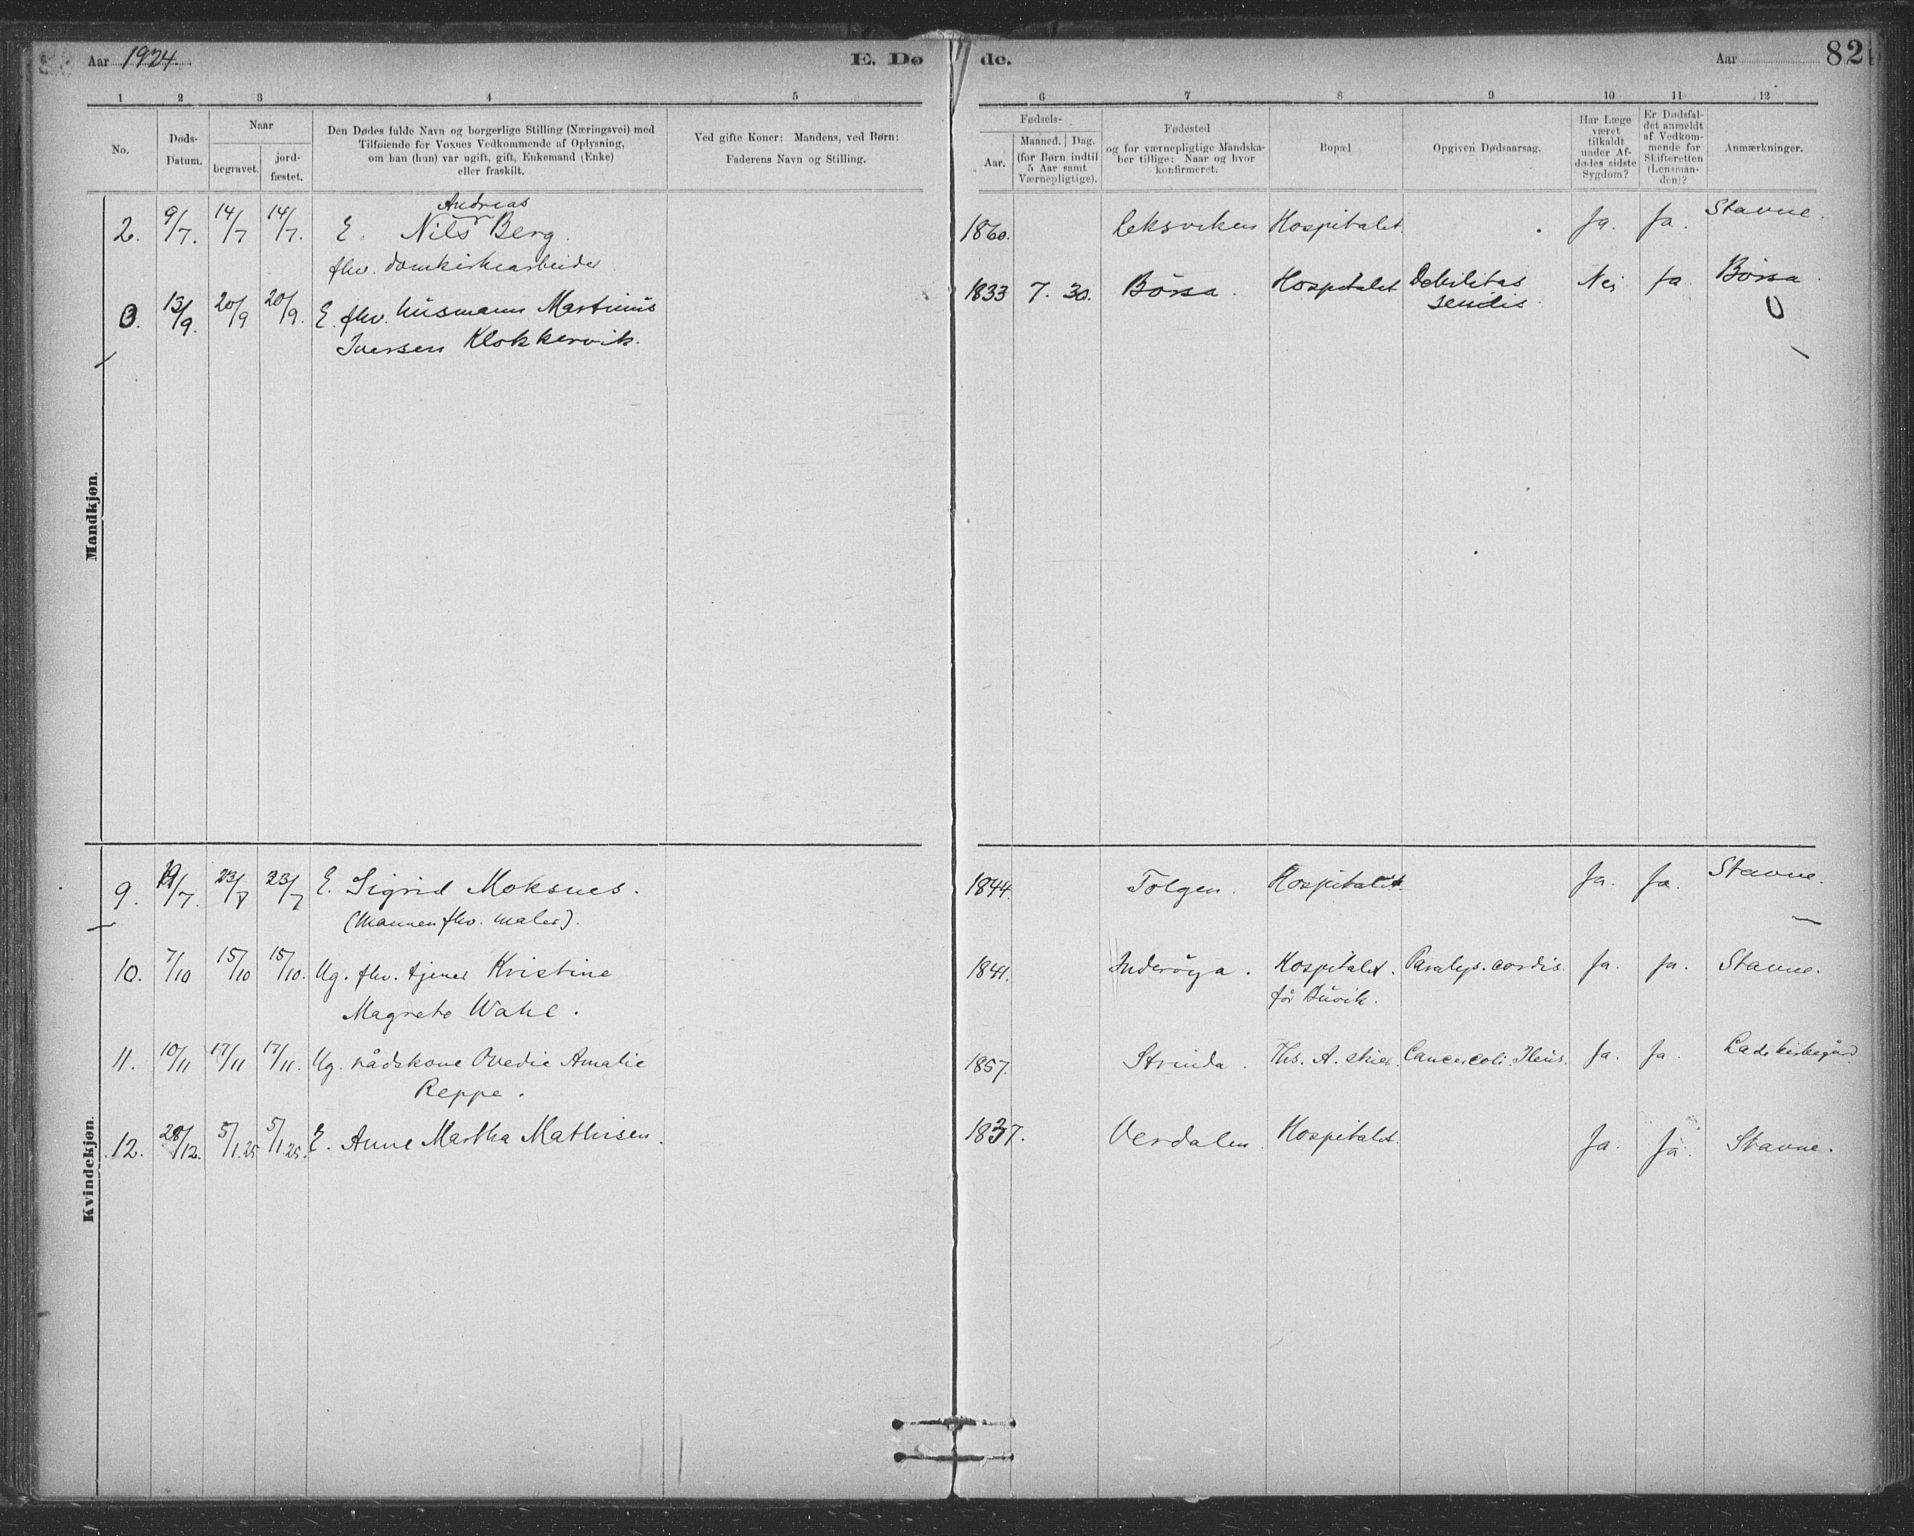 Aar 1924. E. Dø de. Aar 82
1 2 3 4 5 6 7 8 9 10 11 12
No. Døds-Datum. Naar begravet. jordfæstet.
Den Dødes fulde Navn og borgerlige Stilling (Næringsvei) med
Tilføiende for Voxnes Vedkommende af Oplysning,
om han (hun) var ugift, gift, Enkemand (Enke)
eller fraskilt.
Ved gifte Koner: Mandens, ved Børn:
Faderens Navn og Stilling.
Fødsels-
Aar. Maaned. Dag.
(for Børn indtil
5 Aar samt
Værnepligtige).
Fødested
og for værnepligtige Mandska-
ber tillige: Naar og hvor
konfirmeret.
Bopæl
Opgiven Dødsaarsag.
Har Læge
været
tilkaldt
under Af-
dødes sidste
Sygdom?
Er Dødsfal-
det anmeldt
af Vedkom-
mende for
Skifteretten
(Lensman-
den)?
Anmærkninger.
Mandkjøn.
Andreas
2. 9/7. 14/7 14/7. E. Nils Berg. 1860. Leksviken Hospitalet. Ja. Ja. Stavne.
fhv. domkirkearbeider
3. 13/9. 20/9 20/9. E. fhv. husmann Martinus 1833 7. 30. Börsa. Hospitalet Debilitas Nei Ja Börsa
Iversen Klokkervik. senilis.
Kvindekjøn.
9. 19/7. 23/7 23/7 E. Sigrid Moksnes. 1844. Tolgen. Hospitalet. Ja. Ja. Stavne.
(Mannen fhv. maler).
10. 7/10 15/10 15/10. Ug. fhv. tjener Kristine 1841. Inderöya. Hospitalet. Paralys. cordis. Ja. Ja. Stavne.
Magrete Wahl. för Buvik.
11. 10/11 17/11 17/11. Ug. rådskone Ovedie Amalie 1857. Strinda. Ths. A. Cancer coli. Ileus. Ja. Ja. Lade kirkegård
Reppe.
12. 28/12. 5/1.25 5/1.25. E. Anne Martha Mathisen. 1837. Verdalen. Hospitalet. Ja. Ja. Stavne.